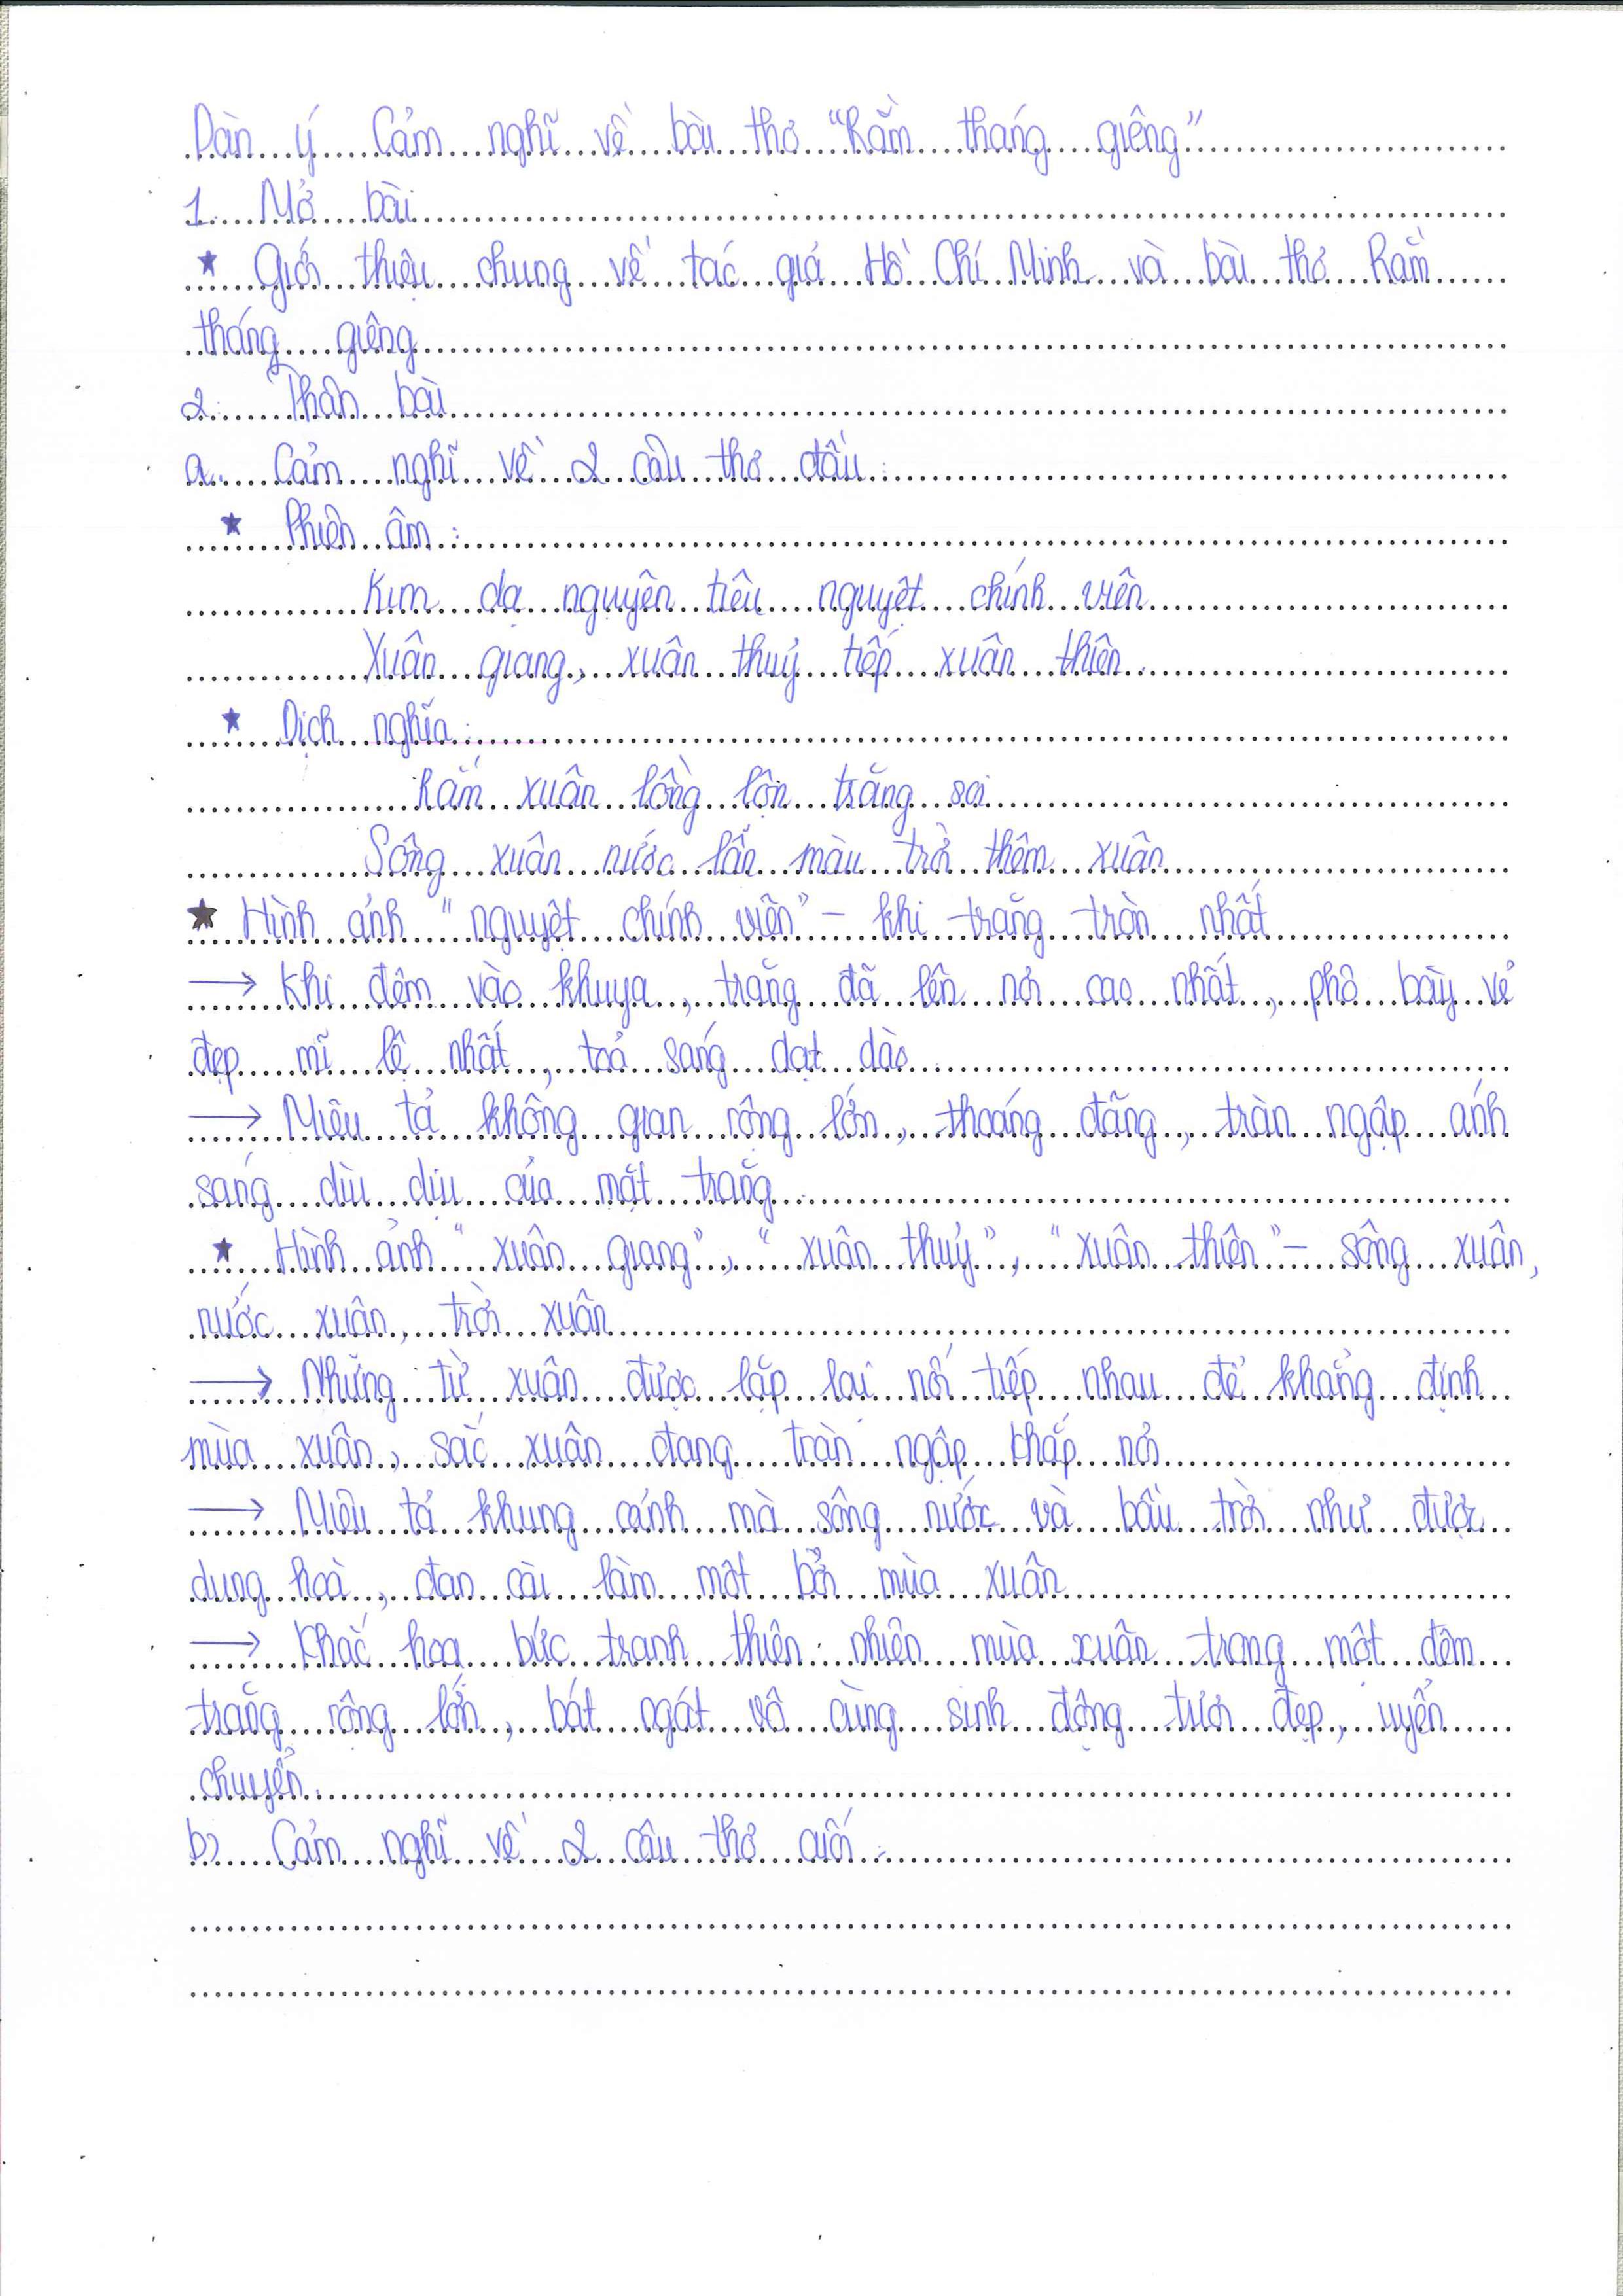 Dàn ý Cảm nghĩ về bài thơ "Rằm tháng giêng"
1. Mở bài
★ Giới thiệu chung về tác giả Hồ Chí Minh và bài thơ Rằm
tháng giêng
2. Thân bài
a. Cảm nghĩ về 2 câu thơ đầu :
★ Phiên âm :
Kim dạ nguyên tiêu nguyệt chính viên
Xuân giang, xuân thuỷ tiếp xuân thiên.
★ Dịch nghĩa :
Rằm xuân lồng lộn trăng soi
Sông xuân nước lẫn màu trời thêm xuân
★ Hình ảnh "nguyệt chính viên" - khi trăng tròn nhất
→ Khi đêm vào khuya, trăng đã lên nơi cao nhất, phô bày vẻ
đẹp mĩ lệ nhất, toả sáng dạt dào
→ Miêu tả không gian rộng lớn, thoáng đãng, tràn ngập ánh
sáng dìu dịu của mặt trăng
★ Hình ảnh "xuân giang", "xuân thuỷ", "xuân thiên" - sông xuân,
nước xuân, trời xuân
→ Những từ xuân được lặp lại nối tiếp nhau để khẳng định
mùa xuân, sắc xuân đang tràn ngập khắp nơi
→ Miêu tả khung cảnh mà sông nước và bầu trời như được
dung hoà, đan cài làm một bởi mùa xuân
→ Khắc hoạ bức tranh thiên nhiên mùa xuân trong một đêm
trăng rộng lớn, bát ngát vô cùng sinh động tươi đẹp, uyển
chuyển.
b) Cảm nghĩ về 2 câu thơ cuối :